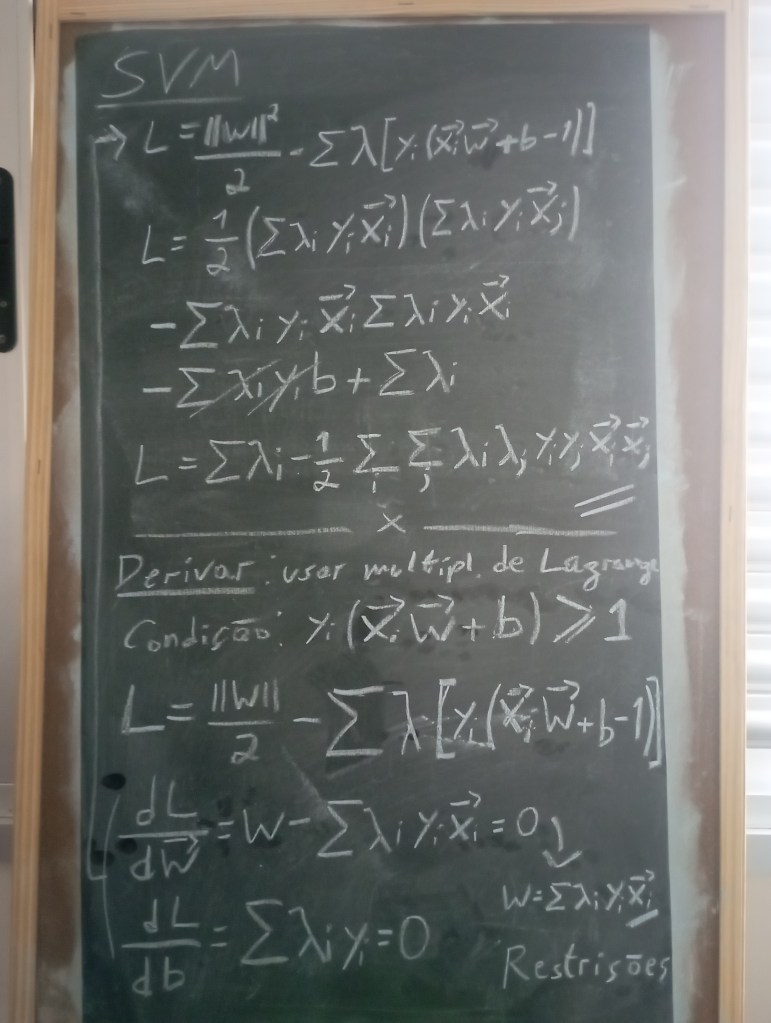 SVM
→ L = ||w||²/2 - Σλ[yᵢ(x⃗ᵢw⃗+b-1)]
L = 1/2 (Σλᵢyᵢx⃗ᵢ)(Σλᵢyᵢx⃗ⱼ)
-Σλᵢyᵢx⃗ᵢΣλᵢyᵢx⃗ᵢ
-Σλᵢyᵢb + Σλᵢ
L = Σλᵢ - 1/2 Σᵢ Σⱼ λᵢλⱼyᵢyⱼx⃗ᵢx⃗ⱼ
x
Derivar: usar multipl. de Lagrange
Condição: yᵢ(x⃗ᵢw⃗+b) ≥ 1
L = ||w||/2 - Σλ[yᵢ(x⃗ᵢw⃗+b-1)]
dL/dw⃗ = w - Σλᵢyᵢx⃗ᵢ = 0
w=Σλᵢyᵢx⃗ᵢ
dL/db = Σλᵢyᵢ=0
Restrisões